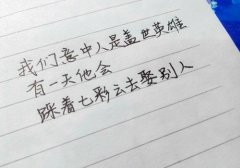 我们意中人是盖世英雄
有一天他会
踩着七彩云去娶别人